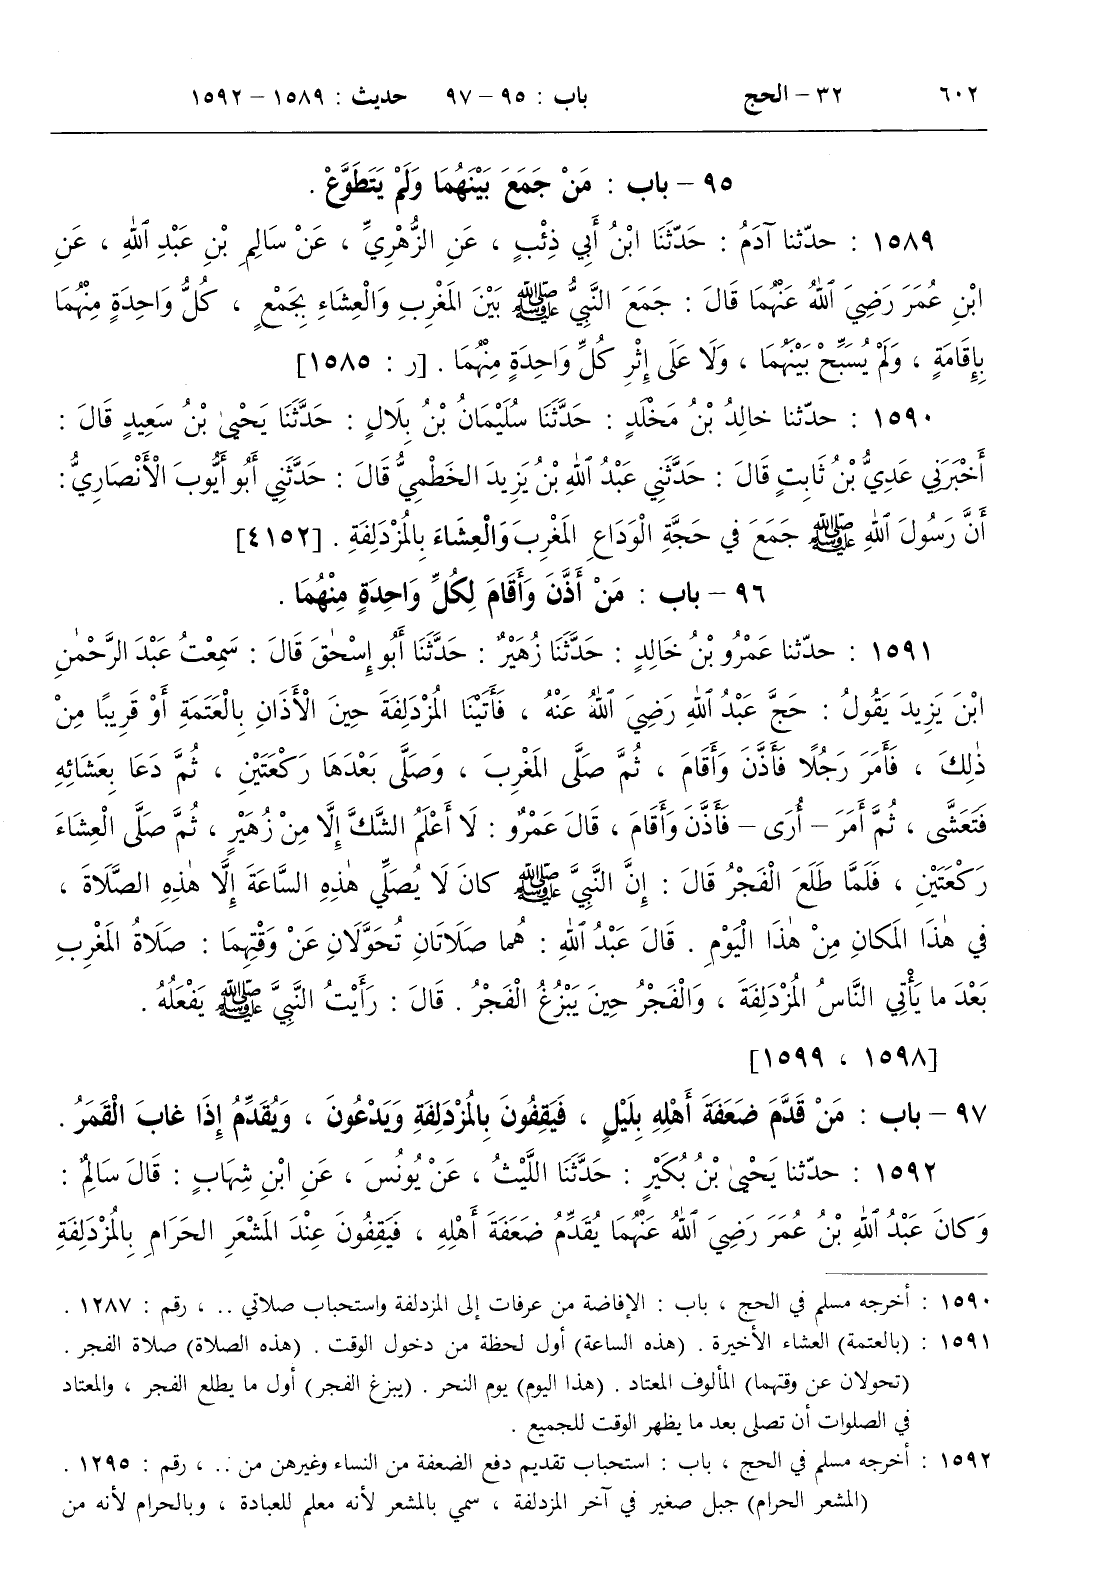 ٦٠٢ ٣٢ – الحج باب : ٩٥ – ٩٧ حديث : ١٥٨٩ – ١٥٩٢
٩٥ – باب : مَنْ جَمَعَ بَيْنَهُمَا وَلَمْ يَتَطَوَّعْ .
١٥٨٩ : حدّثنا آدَمُ : حَدَّثَنَا ابْنُ أَبِي ذِئْبٍ ، عَنِ الزُّهْرِيِّ ، عَنْ سَالِمِ بْنِ عَبْدِ ٱللهِ ، عَنِ
ابْنِ عُمَرَ رَضِيَ ٱللهُ عَنْهُمَا قَالَ : جَمَعَ النَّبِيُّ ﷺ بَيْنَ المَغْرِبِ وَالْعِشَاءِ بِجَمْعٍ ، كُلُّ وَاحِدَةٍ مِنْهُمَا
بِإِقَامَةٍ ، وَلَمْ يُسَبِّحْ بَيْنَهُمَا ، وَلَا عَلَى إِثْرِ كُلِّ وَاحِدَةٍ مِنْهُمَا . [ر : ١٥٨٥]
١٥٩٠ : حدّثنا خالِدُ بْنُ مَخْلَدٍ : حَدَّثَنَا سُلَيْمَانُ بْنُ بِلَالٍ : حَدَّثَنَا يَحْيىٰ بْنُ سَعِيدٍ قَالَ :
أَخْبَرَنِي عَدِيُّ بْنُ ثَابِتٍ قَالَ : حَدَّثَنِي عَبْدُ ٱللهِ بْنُ يَزِيدَ الخَطْمِيُّ قَالَ : حَدَّثَنِي أَبُو أَيُّوبَ الْأَنْصَارِيُّ :
أَنَّ رَسُولَ ٱللهِ ﷺ جَمَعَ فِي حَجَّةِ الْوَدَاعِ المَغْرِبَ وَالْعِشَاءَ بِالمُزْدَلِفَةِ . [٤١٥٢]
٩٦ – باب : مَنْ أَذَّنَ وَأَقَامَ لِكُلِّ وَاحِدَةٍ مِنْهُمَا .
١٥٩١ : حدّثنا عَمْرُو بْنُ خَالِدٍ : حَدَّثَنَا زُهَيْرٌ : حَدَّثَنَا أَبُو إِسْحٰقَ قَالَ : سَمِعْتُ عَبْدَ الرَّحْمٰنِ
ابْنَ يَزِيدَ يَقُولُ : حَجَّ عَبْدُ ٱللهِ رَضِيَ ٱللهُ عَنْهُ ، فَأَتَيْنَا المُزْدَلِفَةَ حِينَ الْأَذَانِ بِالْعَتَمَةِ أَوْ قَرِيبًا مِنْ
ذٰلِكَ ، فَأَمَرَ رَجُلًا فَأَذَّنَ وَأَقَامَ ، ثُمَّ صَلَّى المَغْرِبَ ، وَصَلَّى بَعْدَهَا رَكْعَتَيْنِ ، ثُمَّ دَعَا بِعَشَائِهِ
فَتَعَشَّى ، ثُمَّ أَمَرَ – أُرَى – فَأَذَّنَ وَأَقَامَ ، قَالَ عَمْرٌو : لَا أَعْلَمُ الشَّكَّ إِلَّا مِنْ زُهَيْرٍ ، ثُمَّ صَلَّى الْعِشَاءَ
رَكْعَتَيْنِ ، فَلَمَّا طَلَعَ الْفَجْرُ قَالَ : إِنَّ النَّبِيَّ ﷺ كانَ لَا يُصَلِّي هٰذِهِ السَّاعَةَ إِلَّا هٰذِهِ الصَّلَاةَ ،
فِي هٰذَا المَكانِ مِنْ هٰذَا الْيَوْمِ . قَالَ عَبْدُ ٱللهِ : هُما صَلَاتَانِ تُحَوَّلَانِ عَنْ وَقْتِهِمَا : صَلَاةُ المَغْرِبِ
بَعْدَ ما يَأْتِي النَّاسُ المُزْدَلِفَةَ ، وَالْفَجْرُ حِينَ يَبْزُغُ الْفَجْرُ . قَالَ : رَأَيْتُ النَّبِيَّ ﷺ يَفْعَلُهُ .
[١٥٩٨ ، ١٥٩٩]
٩٧ – باب : مَنْ قَدَّمَ ضَعَفَةَ أَهْلِهِ بِلَيْلٍ ، فَيَقِفُونَ بِالمُزْدَلِفَةِ وَيَدْعُونَ ، وَيُقَدِّمُ إِذَا غابَ الْقَمَرُ .
١٥٩٢ : حدّثنا يَحْيىٰ بْنُ بُكَيْرٍ : حَدَّثَنَا اللَّيْثُ ، عَنْ يُونُسَ ، عَنِ ابْنِ شِهَابٍ : قَالَ سَالِمٌ :
وَكانَ عَبْدُ ٱللهِ بْنُ عُمَرَ رَضِيَ ٱللهُ عَنْهُمَا يُقَدِّمُ ضَعَفَةَ أَهْلِهِ ، فَيَقِفُونَ عِنْدَ المَشْعَرِ الحَرَامِ بِالمُزْدَلِفَةِ
١٥٩٠ : أخرجه مسلم في الحج ، باب : الإفاضة من عرفات إلى المزدلفة واستحباب صلاتي .. ، رقم : ١٢٨٧ .
١٥٩١ : (بالعتمة) العشاء الأخيرة . (هذه الساعة) أول لحظة من دخول الوقت . (هذه الصلاة) صلاة الفجر .
(تحولان عن وقتهما) المألوف المعتاد . (هذا اليوم) يوم النحر . (يبزغ الفجر) أول ما يطلع الفجر ، والمعتاد
في الصلوات أن تصلى بعد ما يظهر الوقت للجميع .
١٥٩٢ : أخرجه مسلم في الحج ، باب : استحباب تقديم دفع الضعفة من النساء وغيرهن من .. ، رقم : ١٢٩٥ .
(المشعر الحرام) جبل صغير في آخر المزدلفة ، سمي بالمشعر لأنه معلم للعبادة ، وبالحرام لأنه من